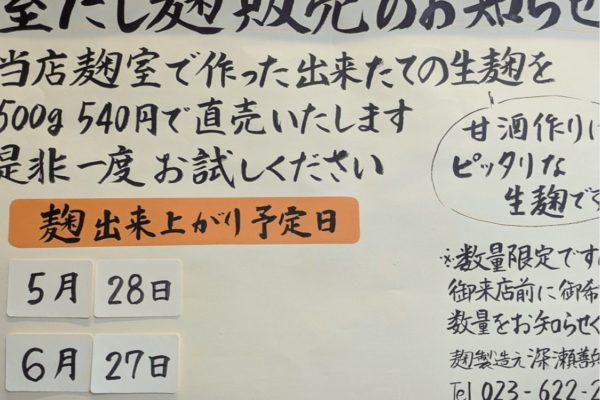 室だし麹販売のお知らせ
当店麹室で作った出来たての生麹を
500g 540円で直売いたします
是非一度 お試しください
甘酒作りに
ピッタリな
生麹です
麹出来上がり予定日
5月 28日
6月 27日
※数量限定です
御来店前に御希
数量をお知らせく
麹製造元 深瀬善兵
Tel 023-622-2